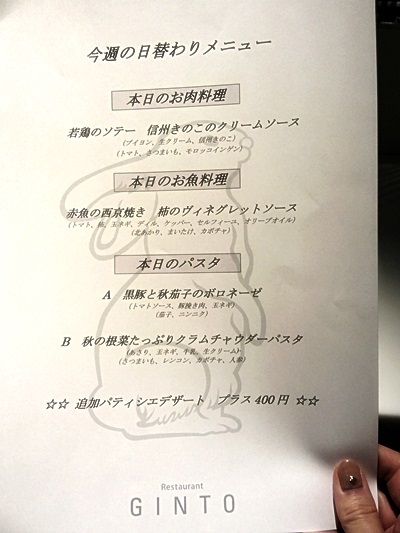 今週の日替わりメニュー
本日のお肉料理
若鶏のソテー 信州きのこのクリームソース
(ブイヨン、生クリーム、信州きのこ)
(トマト、さつまいも、モロッコインゲン)
本日のお魚料理
赤魚の西京焼き 柿のヴィネグレットソース
(トマト、柿、玉ネギ、ディル、ケッパー、セルフィーユ、オリーブオイル)
(北あかり、まいたけ、カボチャ)
本日のパスタ
A 黒豚と秋茄子のボロネーゼ
(トマトソース、豚挽き肉、玉ネギ)
(茄子、ニンニク)
B 秋の根菜たっぷりクラムチャウダーパスタ
(あさり、玉ネギ、牛乳、生クリーム)
(さつまいも、レンコン、カボチャ、人参)
☆☆ 追加パティシエデザート プラス400円 ☆☆
Restaurant
GINTO